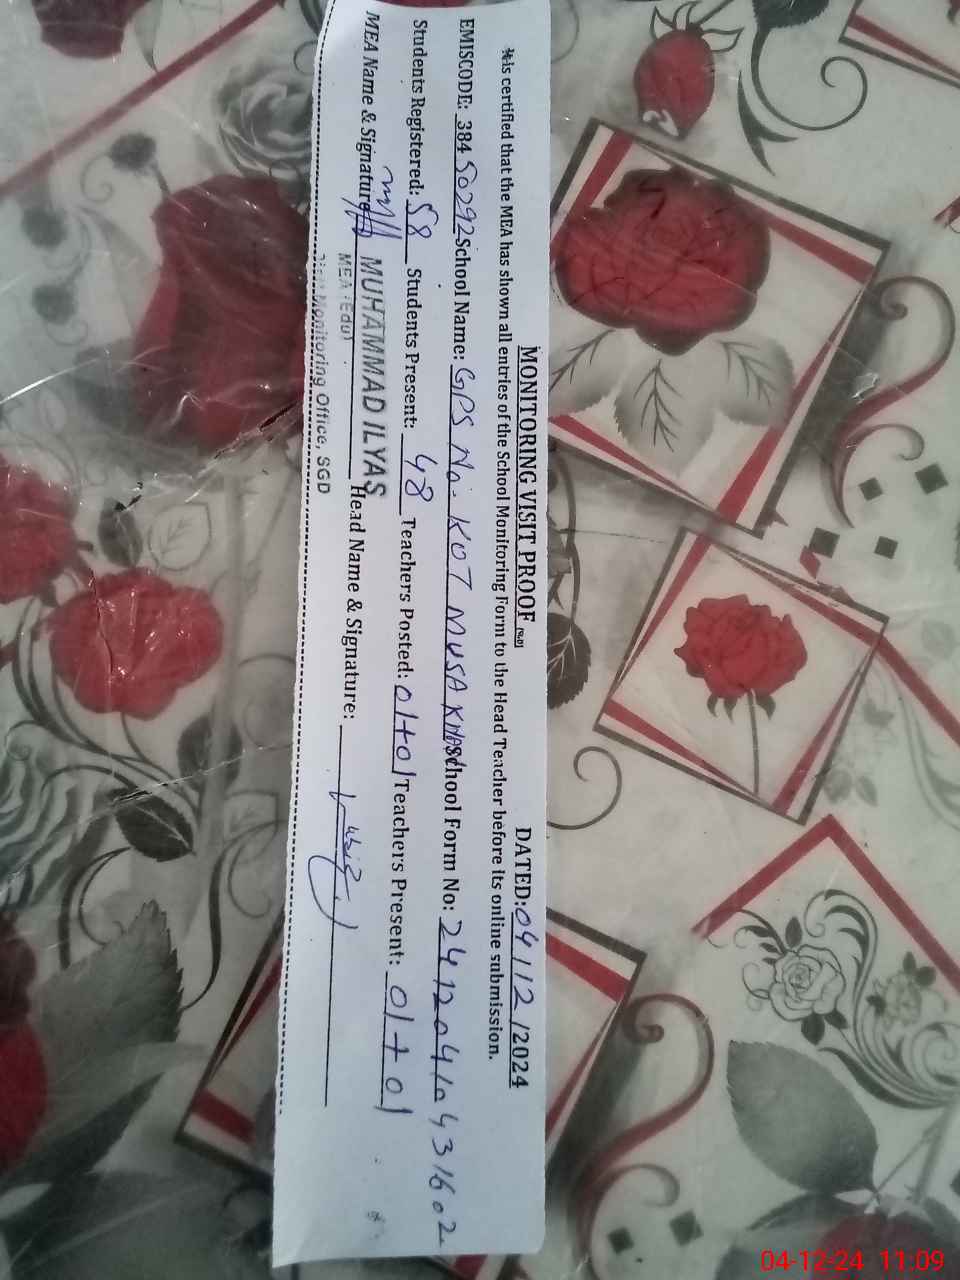 MONITORING VISIT PROOF DATED: 04/12/2024
It is certified that the MEA has shown all entries of the School Monitoring Form to the Head Teacher before its online submission.
EMISCODE: 38450292 School Name: GPS No. KOT MUSA KHAN School Form No: 24120410431602
Students Registered: 58 Students Present: 48 Teachers Posted: 01+01 Teachers Present: 01+01
MEA Name & Signature: MUHAMMAD ILYAS Head Name & Signature:
MEA (Edu)
Monitoring Office, SGD
04-12-24 11:09